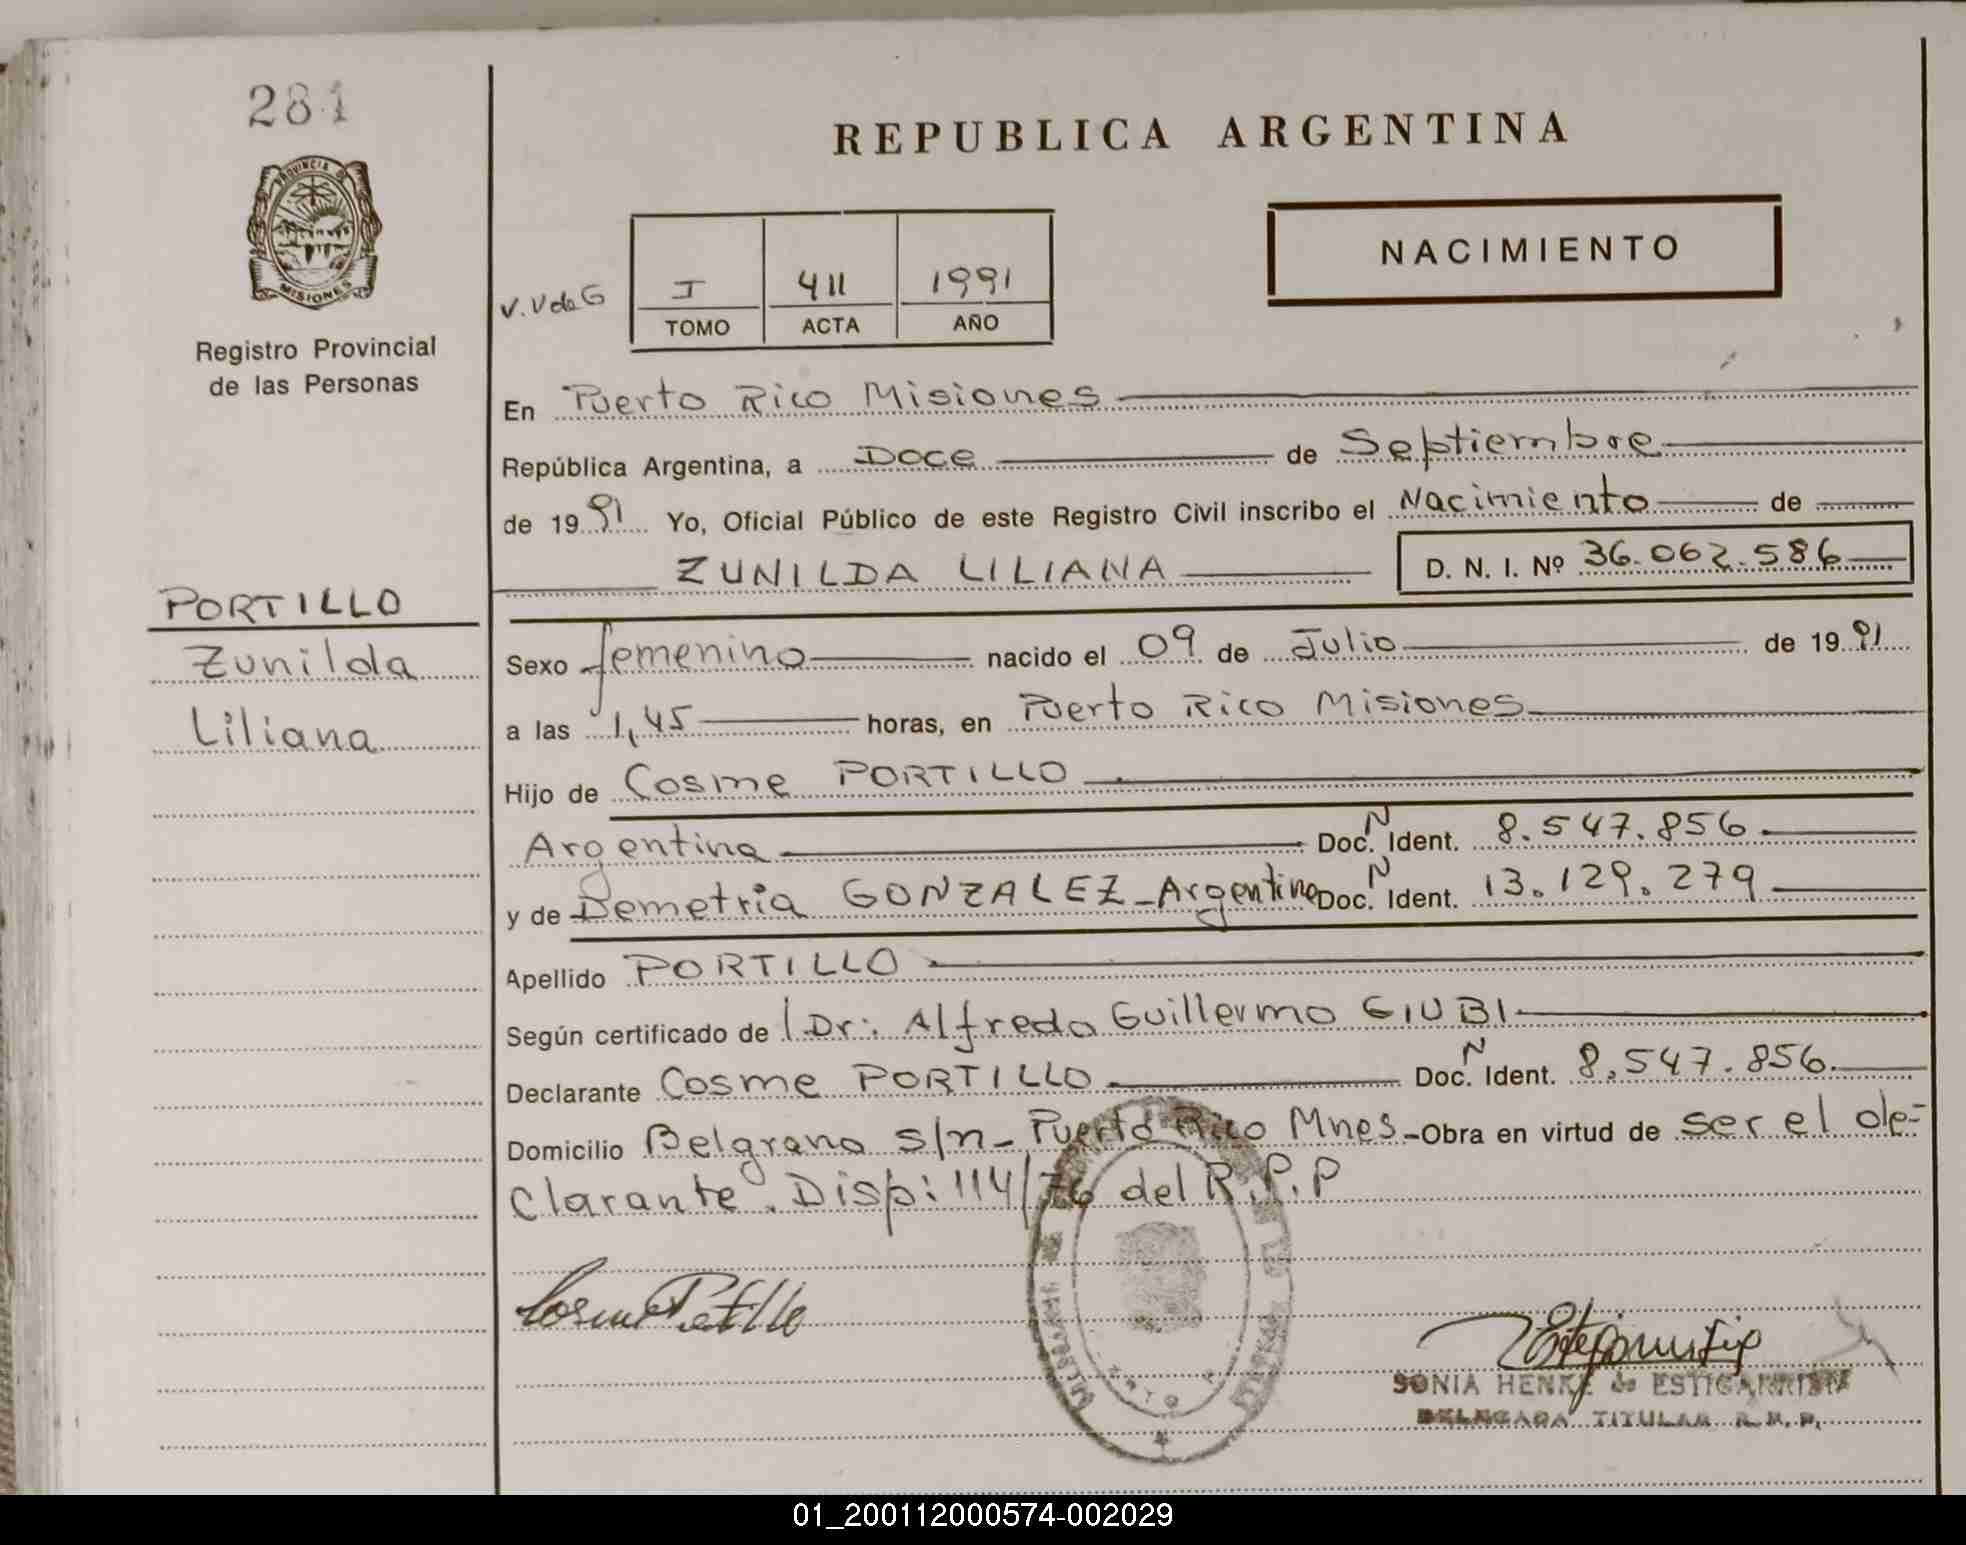 281
REPUBLICA ARGENTINA
PROVINCIA DE
MISIONES
NACIMIENTO
V.V de G
I 411 1991
TOMO ACTA AÑO
Registro Provincial
de las Personas
En Puerto Rico Misiones
República Argentina, a Doce de Septiembre
de 1991 Yo, Oficial Público de este Registro Civil inscribo el Nacimiento de
ZUNILDA LILIANA D. N. I. Nº 36.062.586
PORTILLO
Zunilda
Liliana
Sexo femenino nacido el 09 de Julio de 1991
a las 1,45 horas, en Puerto Rico Misiones
Hijo de Cosme PORTILLO
Argentina Doc. N Ident. 8.547.856
y de Demetria GONZALEZ - Argentina Doc. N Ident. 13.129.279
Apellido PORTILLO
Según certificado de Dr: Alfredo Guillermo GIUBI
Declarante Cosme PORTILLO Doc. N Ident. 8.547.856
Domicilio Belgrano s/n - Puerto Rico Mnes - Obra en virtud de ser el de-
clarante. Disp: 114/76 del R.P.P
SONIA HENKE de ESTIGARRIBIA
DELEGADA TITULAR R. P. P.
01_200112000574-002029